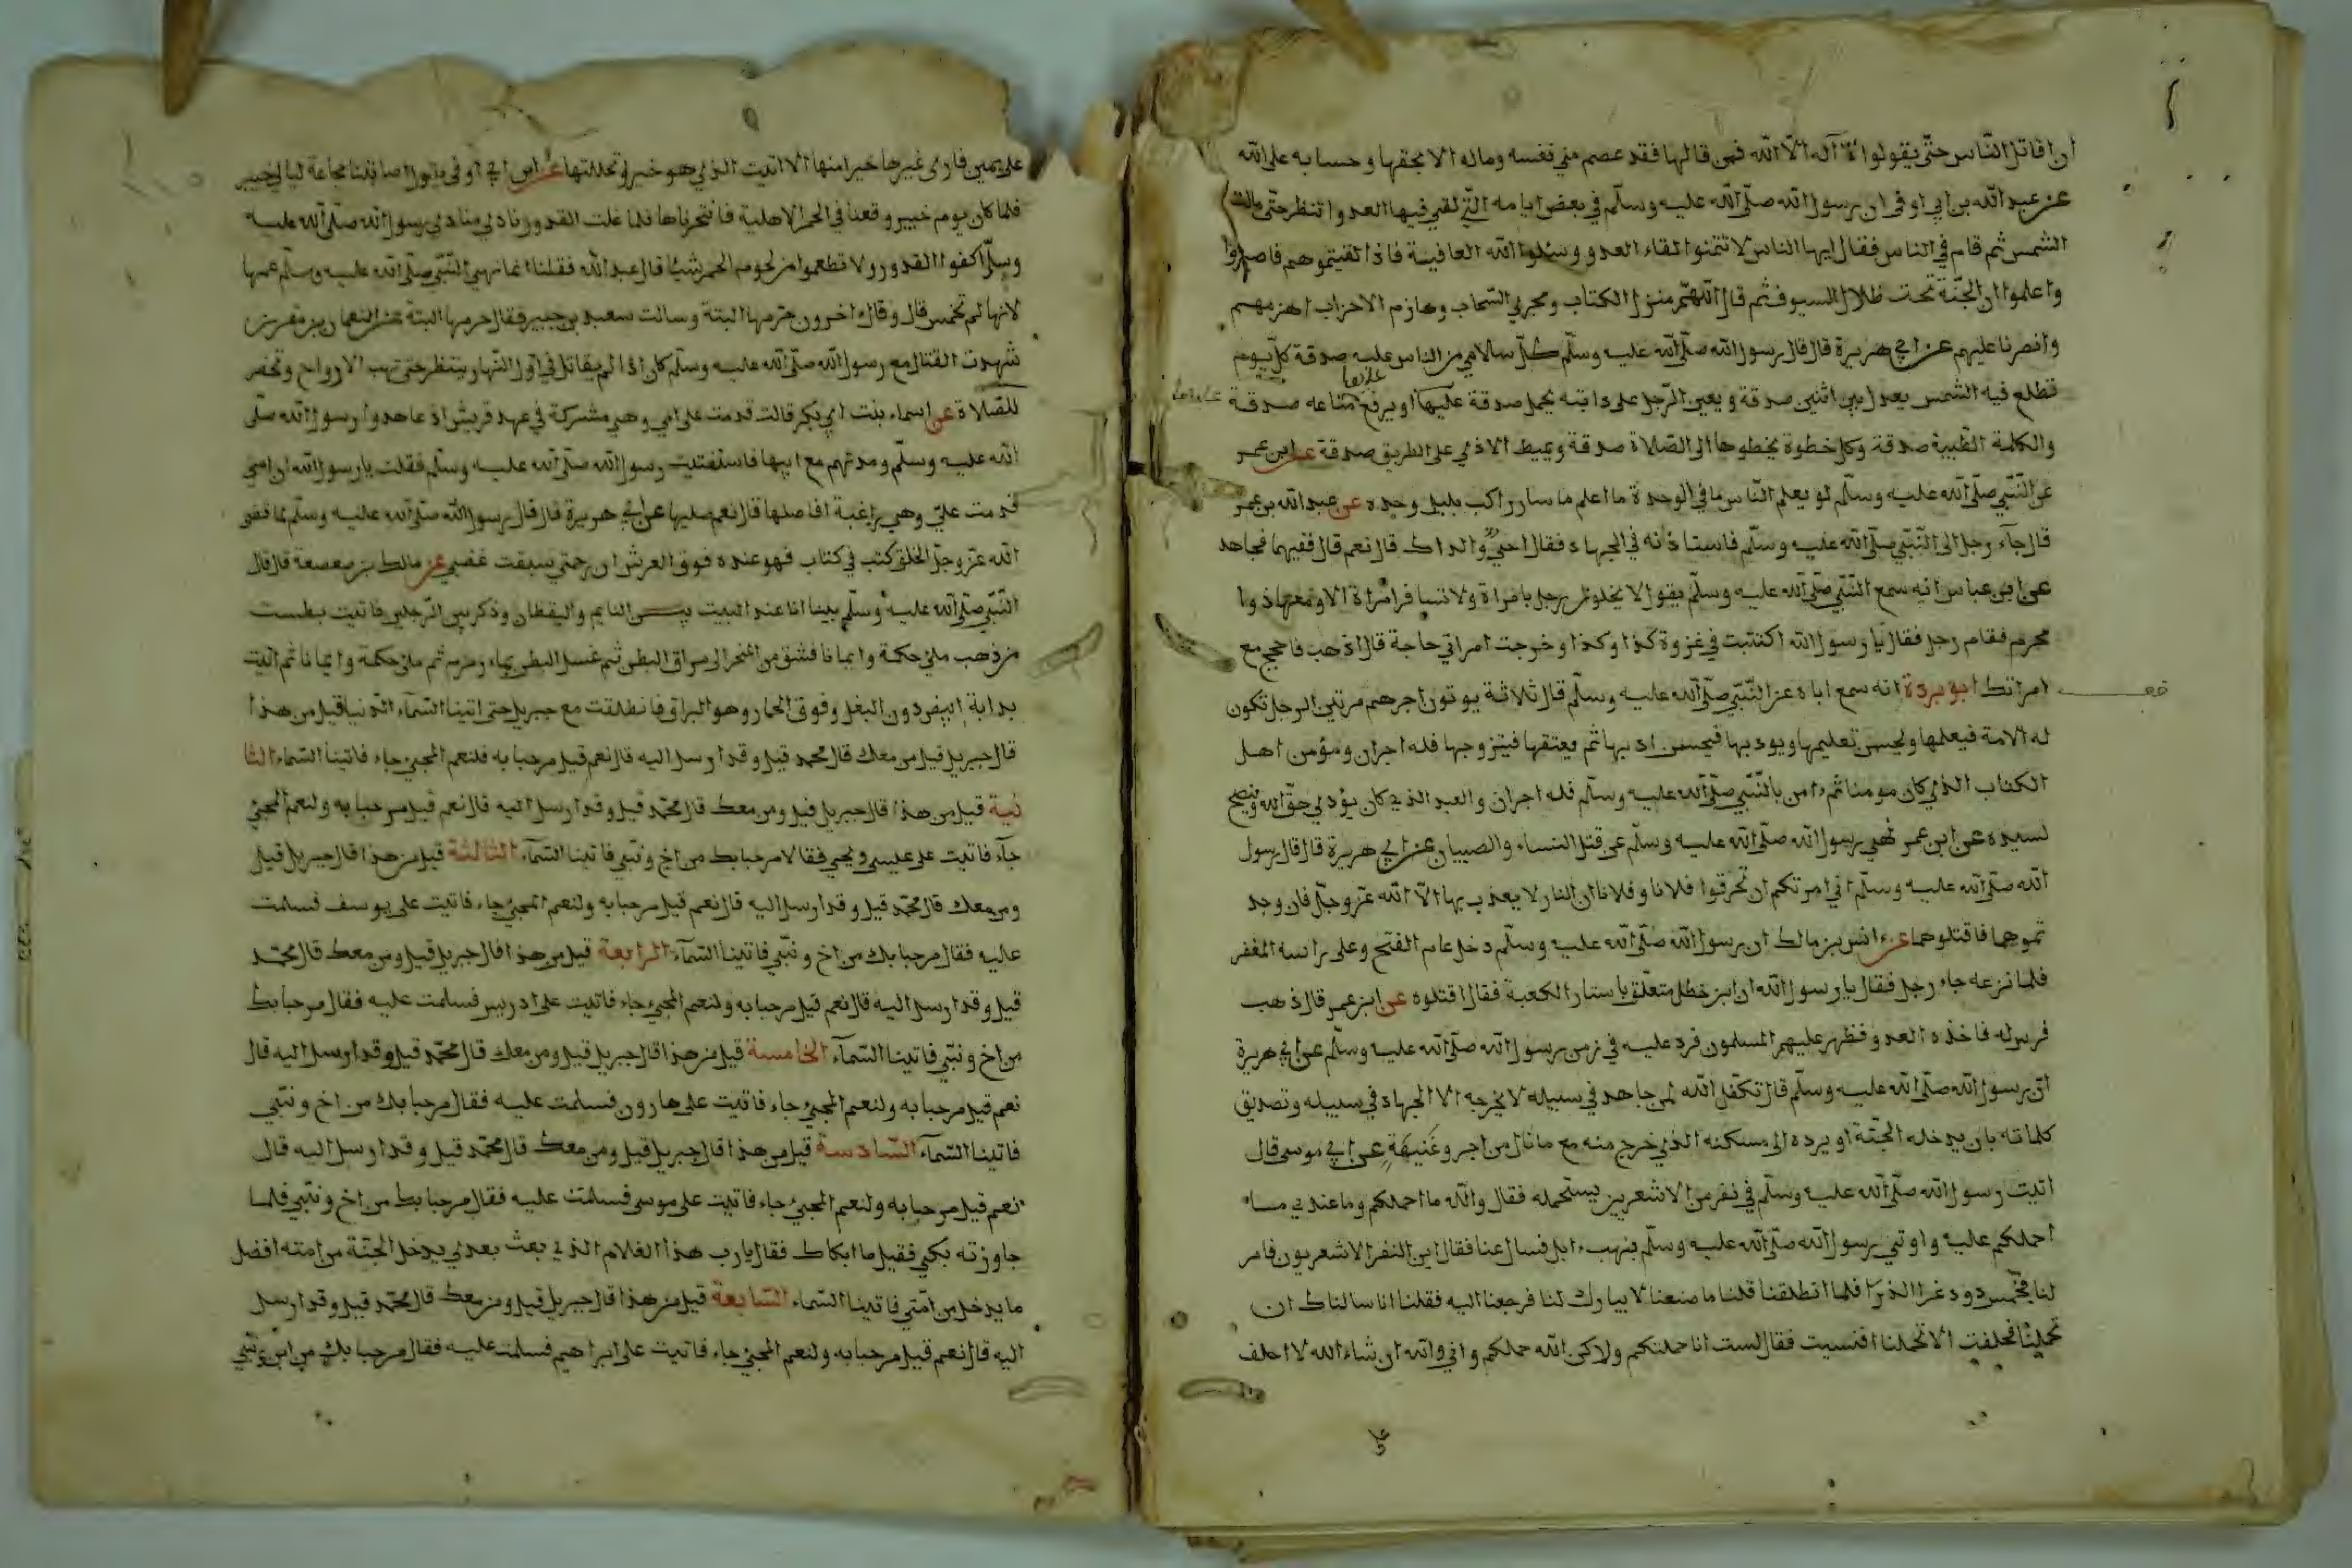 ان اقاتل الناس حتى يقولوا لا اله الا الله فمن قالها فقد عصم مني نفسه وماله الا بحقها وحسابه على الله
عن عبد الله بن ابي اوفى ان رسول الله صلى الله عليه وسلم في بعض ايامه التي لقي فيها العدو انتظر حتى مالت
الشمس ثم قام في الناس فقال ايها الناس لا تتمنوا لقاء العدو وسئلوا الله العافية فاذا لقيتموهم فاصبروا
واعلموا ان الجنة تحت ظلال السيوف ثم قال اللهم منزل الكتاب ومجري السحاب وهازم الاحزاب اهزمهم
وانصرنا عليهم عن ابي هريرة قال قال رسول الله صلى الله عليه وسلم كل سلامي من الناس عليه صدقة كل يوم
تطلع فيه الشمس يعدل بين اثنين صدقة ويعين الرجل على دابته يحمل صدقة عليها او يرفع متاعه صدقة
والكلمة الطيبة صدقة وكل خطوة يخطوها الى الصلاة صدقة ويميط الاذى على الطريق صدقة عن ابن عمر
عن النبي صلى الله عليه وسلم لو يعلم الناس ما في الوحدة ما اعلم ما سار راكب بليل وحده عن عبد الله بن عمر
قال جآء رجل الى النبي صلى الله عليه وسلم فاستاذنه في الجهاد فقال احي والداك قال نعم قال ففيهما فجاهد
عن ابن عباس انه سمع النبي صلى الله عليه وسلم يقول لا يخلون رجل بامراة ولا تسافر امراة الا ومعها ذوا
محرم فقام رجل فقال يا رسول الله اكتتبت في غزوة كذا وكذا وخرجت امراتي حاجة قال اذهب فاحجج مع
امراتك ابو بردة انه سمع اباه عن النبي صلى الله عليه وسلم قال ثلاثة يوتون اجرهم مرتين الرجل تكون
له الامة فيعلمها ويحسن تعليمها ويودبها فيحسن ادبها ثم يعتقها فيتزوجها فله اجران ومؤمن اهل
الكتاب الذي كان مومنا ثم ءامن بالنبي صلى الله عليه وسلم فله اجران والعبد الذي كان يؤدي حق الله وينصح
لسيده عن ابن عمر نهى رسول الله صلى الله عليه وسلم عن قتل النساء والصبيان عن ابي هريرة قال قال رسول
الله صلى الله عليه وسلم اني امرتكم ان تحرقوا فلانا وفلانا ان النار لا يعذب بها الا الله عز وجل فان وجد
تموهما فاقتلوهما عن انس بن مالك ان رسول الله صلى الله عليه وسلم دخل عام الفتح وعلى راسه المغفر
فلما نزعه جاء رجل فقال يا رسول الله ان ابن خطل متعلق باستار الكعبة فقال اقتلوه عن ابن عمر قال ذهب
فرس له فاخذه العدو فظهر عليهم المسلمون فرد عليه في زمن رسول الله صلى الله عليه وسلم عن ابي هريرة
ان رسول الله صلى الله عليه وسلم قال تكفل الله لمن جاهد في سبيله لا يخرجه الا الجهاد في سبيله وتصديق
كلماته بان يدخله الجنة او يرده الى مسكنه الذي خرج منه مع ما نال من اجر وغنيمة عن ابي موسى قال
اتيت رسول الله صلى الله عليه وسلم في نفر من الاشعريين يستحمله فقال والله ما احملكم وما عندي ما
احملكم عليه واوتي رسول الله صلى الله عليه وسلم بنهب ابل فسال عنا فقال اين النفر الاشعريون فامر
لنا بخمس دود غر الذرا فلما انطلقنا قلنا ما صنعنا لا يبارك لنا فرجعنا اليه فقلنا انا سالناك ان
تحملنا فحلفت الا تحملنا افنسيت فقال لست انا حملتكم ولاكن الله حملكم واني والله ان شاء الله لا احلف
على يمين فارى غيرها خيرا منها الا اتيت الذي هو خير وتحللتها عن ابن ابي اوفى يقول اصابتنا مجاعة ليالي خيبر
فلما كان يوم خيبر وقعنا في الحمر الاهلية فانتحرناها فلما غلت القدور نادى منادي رسول الله صلى الله عليه
وسلم اكفوا القدور ولا تطعموا من لحوم الحمر شيئا قال عبد الله فقلنا انما نهى النبي صلى الله عليه وسلم عنها
لانها لم تخمس قال وقال اخرون حرمها البتة وسالت سعيد بن جبير فقال حرمها البتة عن النعمان بن مقرن
شهدت القتال مع رسول الله صلى الله عليه وسلم كان اذا لم يقاتل في اول النهار ينتظر حتى تهب الارواح وتحضر
للصلاة عن اسماء بنت ابي بكر قالت قدمت على امي وهي مشركة في عهد قريش اذ عاهدوا رسول الله صلى
الله عليه وسلم ومدتهم مع ابيها فاستفتيت رسول الله صلى الله عليه وسلم فقلت يا رسول الله ان امي
قدمت علي وهي راغبة افاصلها قال نعم صليها عن ابي هريرة قال قال رسول الله صلى الله عليه وسلم لما قضى
الله عز وجل الخلق كتب في كتاب فهو عنده فوق العرش ان رحمتي سبقت غضبي عن مالك بن صعصعة قال قال
النبي صلى الله عليه وسلم بينا انا عند البيت بين النايم واليقظان وذكر بين الرجلين فاتيت بطست
من ذهب ملئ حكمة وايمانا فشق من النحر الى مراق البطن ثم غسل البطن بماء زمزم ثم ملئ حكمة وايمانا ثم اتيت
بدابة ابيض دون البغل وفوق الحمار وهو البراق فانطلقت مع جبريل حتى اتينا السمآء الدنيا قيل من هذا
قال جبريل قيل من معك قال محمد قيل وقد ارسل اليه قال نعم قيل مرحبا به فلنعم المجئ جاء فاتينا السماء الثا
نية قيل من هذا قال جبريل قيل ومن معك قال محمد قيل وقد ارسل اليه قال نعم قيل مرحبا به ولنعم المجئ
جآء فاتيت على عيسى ويحيى فقالا مرحبا بك من اخ ونبي فاتينا السمآء الثالثة قيل من هذا قال جبريل قيل
ومن معك قال محمد قيل وقد ارسل اليه قال نعم قيل مرحبا به ولنعم المجئ جاء فاتيت على يوسف فسلمت
عليه فقال مرحبا بك من اخ ونبي فاتينا السمآء الرابعة قيل من هذا قال جبريل قيل ومن معك قال محمد
قيل وقد ارسل اليه قال نعم قيل مرحبا به ولنعم المجئ جاء فاتيت على ادريس فسلمت عليه فقال مرحبا بك
من اخ ونبي فاتينا السمآء الخامسة قيل من هذا قال جبريل قيل ومن معك قال محمد قيل وقد ارسل اليه قال
نعم قيل مرحبا به ولنعم المجئ جاء فاتيت على هارون فسلمت عليه فقال مرحبا بك من اخ ونبي
فاتينا السمآء السادسة قيل من هذا قال جبريل قيل ومن معك قال محمد قيل وقد ارسل اليه قال
نعم قيل مرحبا به ولنعم المجئ جاء فاتيت على موسى فسلمت عليه فقال مرحبا بك من اخ ونبي فلما
جاوزته بكى فقيل ما ابكاك فقال يا رب هذا الغلام الذي بعث بعدي يدخل الجنة من امته افضل
ما يدخل من امتي فاتينا السماء السابعة قيل من هذا قال جبريل قيل ومن معك قال محمد قيل وقد ارسل
اليه قال نعم قيل مرحبا به ولنعم المجئ جاء فاتيت على ابراهيم فسلمت عليه فقال مرحبا بك من ابن ونبي